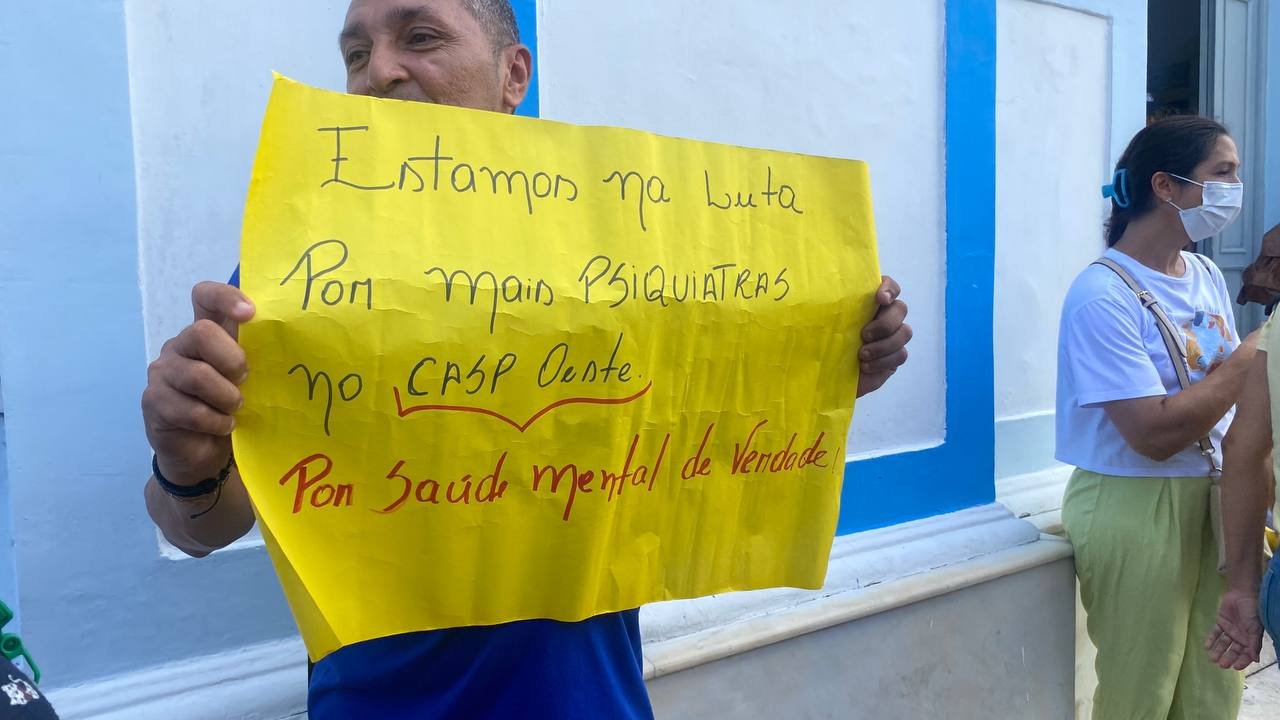 Estamos na Luta
Por mais PSIQUIATRAS
no CASP Oeste.
Por Saúde mental de Verdade!